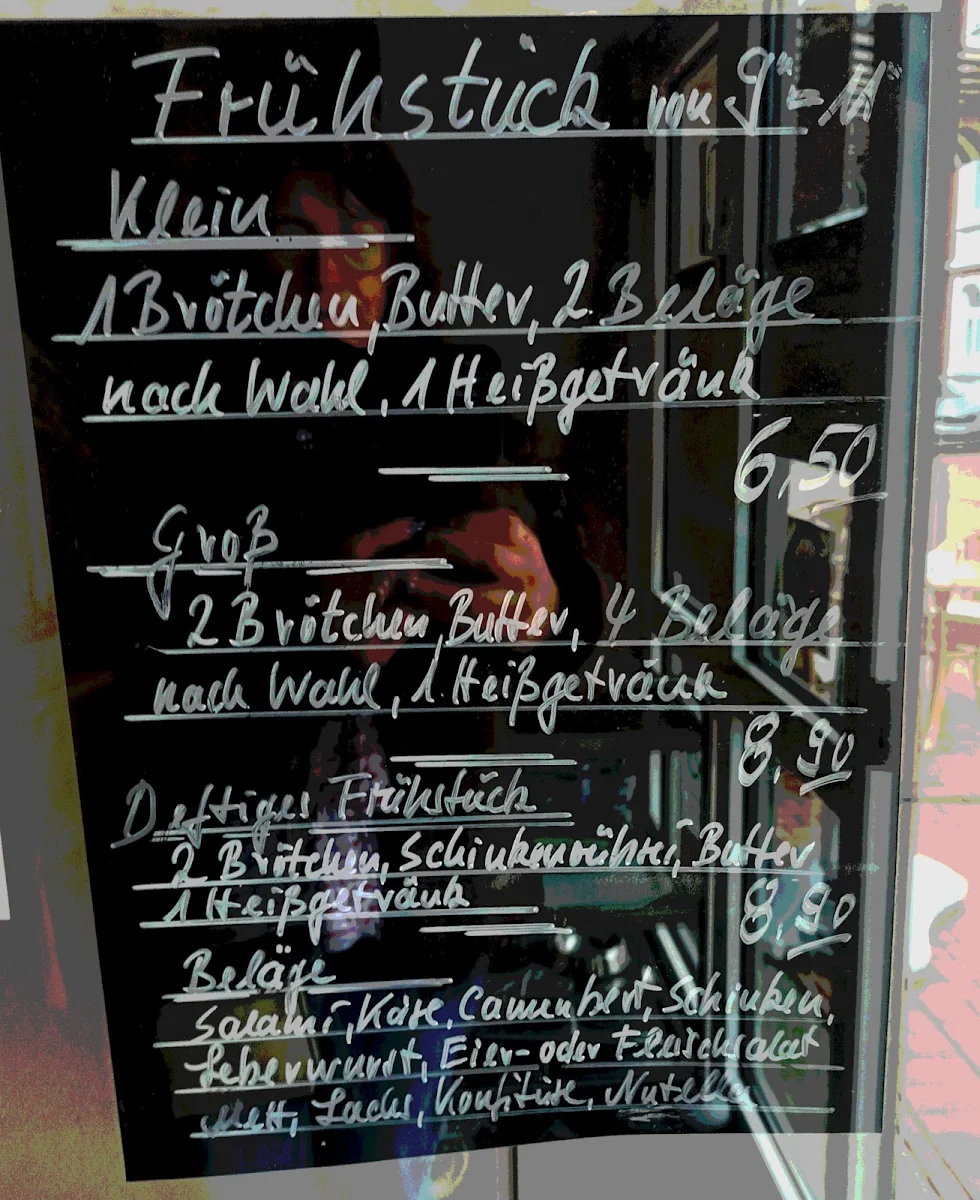 Frühstück von 9°° - 11°°
Klein
1 Brötchen, Butter, 2 Beläge
nach Wahl, 1 Heißgetränk
6,50
Groß
2 Brötchen, Butter, 4 Beläge
nach Wahl, 1 Heißgetränk
8,90
Deftiges Frühstück
2 Brötchen, Schinkenrührei, Butter
1 Heißgetränk
8,90
Beläge
Salami, Käse, Camenbert, Schinken,
Leberwurst, Eier- oder Fleischsalat
Mett, Lachs, Konfitüre, Nutella